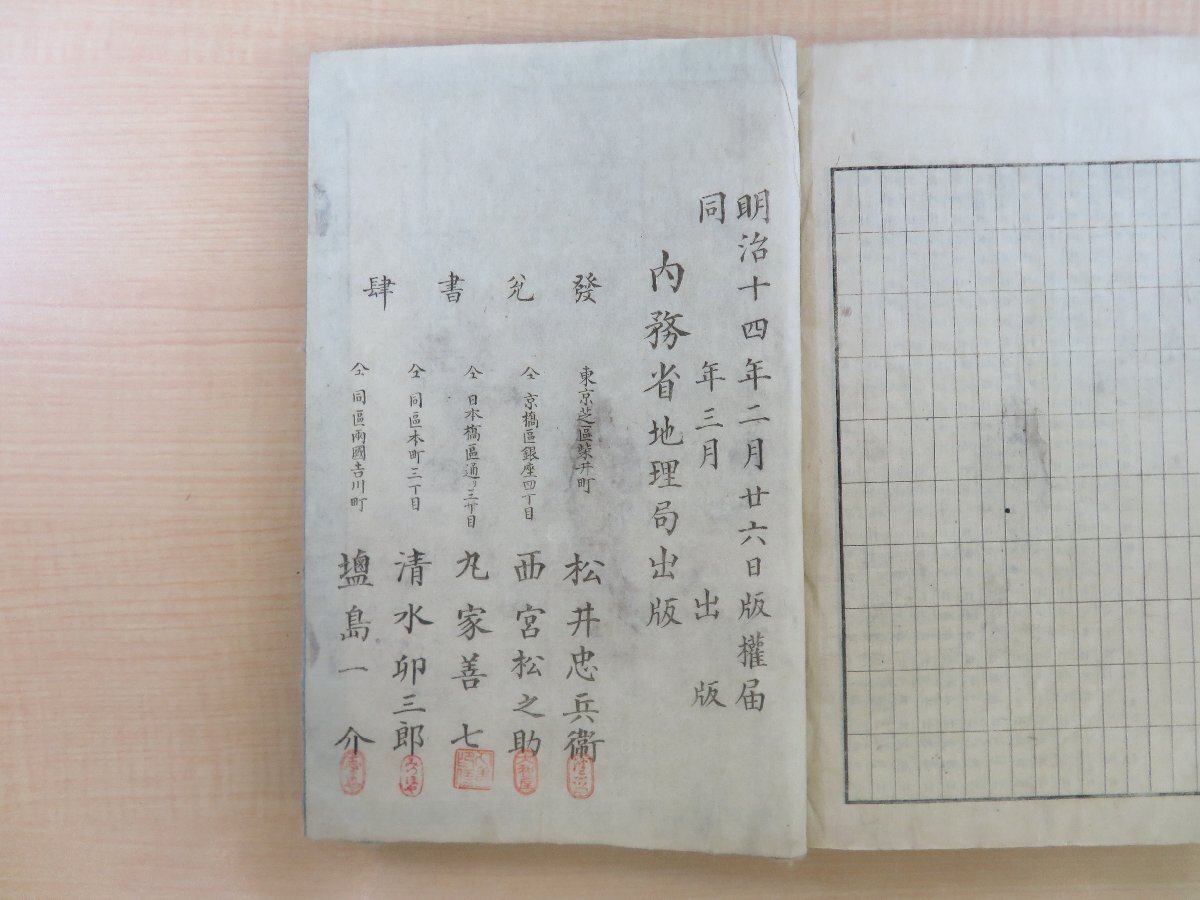 明治十四年二月廿六日版權届
同年三月出版
內務省地理局出版
發兌書肆
東京芝區柴井町 松井忠兵衞
仝京橋區銀座四丁目 西宮松之助
仝日本橋區通リ三丁目 丸家善七
仝同區本町三丁目 清水卯三郎
仝同區兩國吉川町 塩島一介